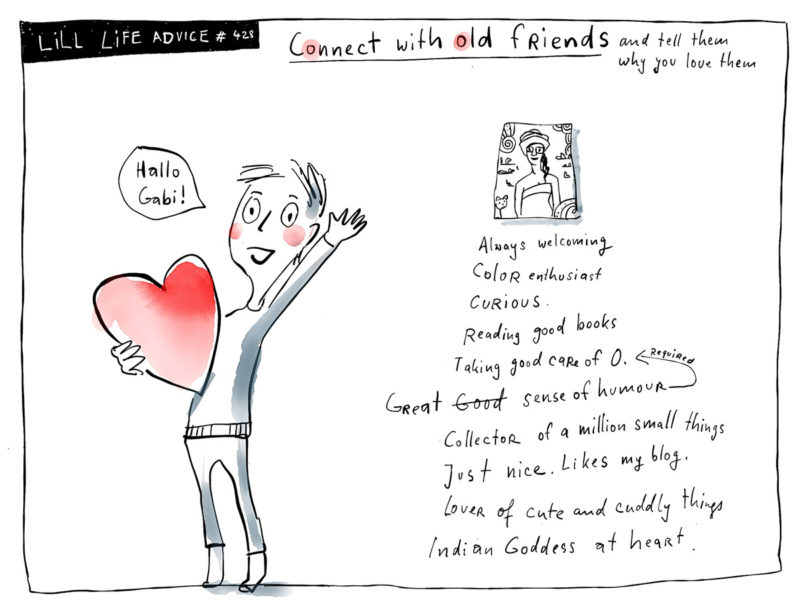 LiLL LiFE ADVICE # 428
Connect with old friends and tell them
why you love them
Hallo
Gabi!
Always welcoming
Color enthusiast
Curious.
Reading good books
Taking good care of O. Required
Great Good sense of humour
Collector of a million small things
Just nice. Likes my blog.
Lover of cute and cuddly things
Indian Goddess at heart.